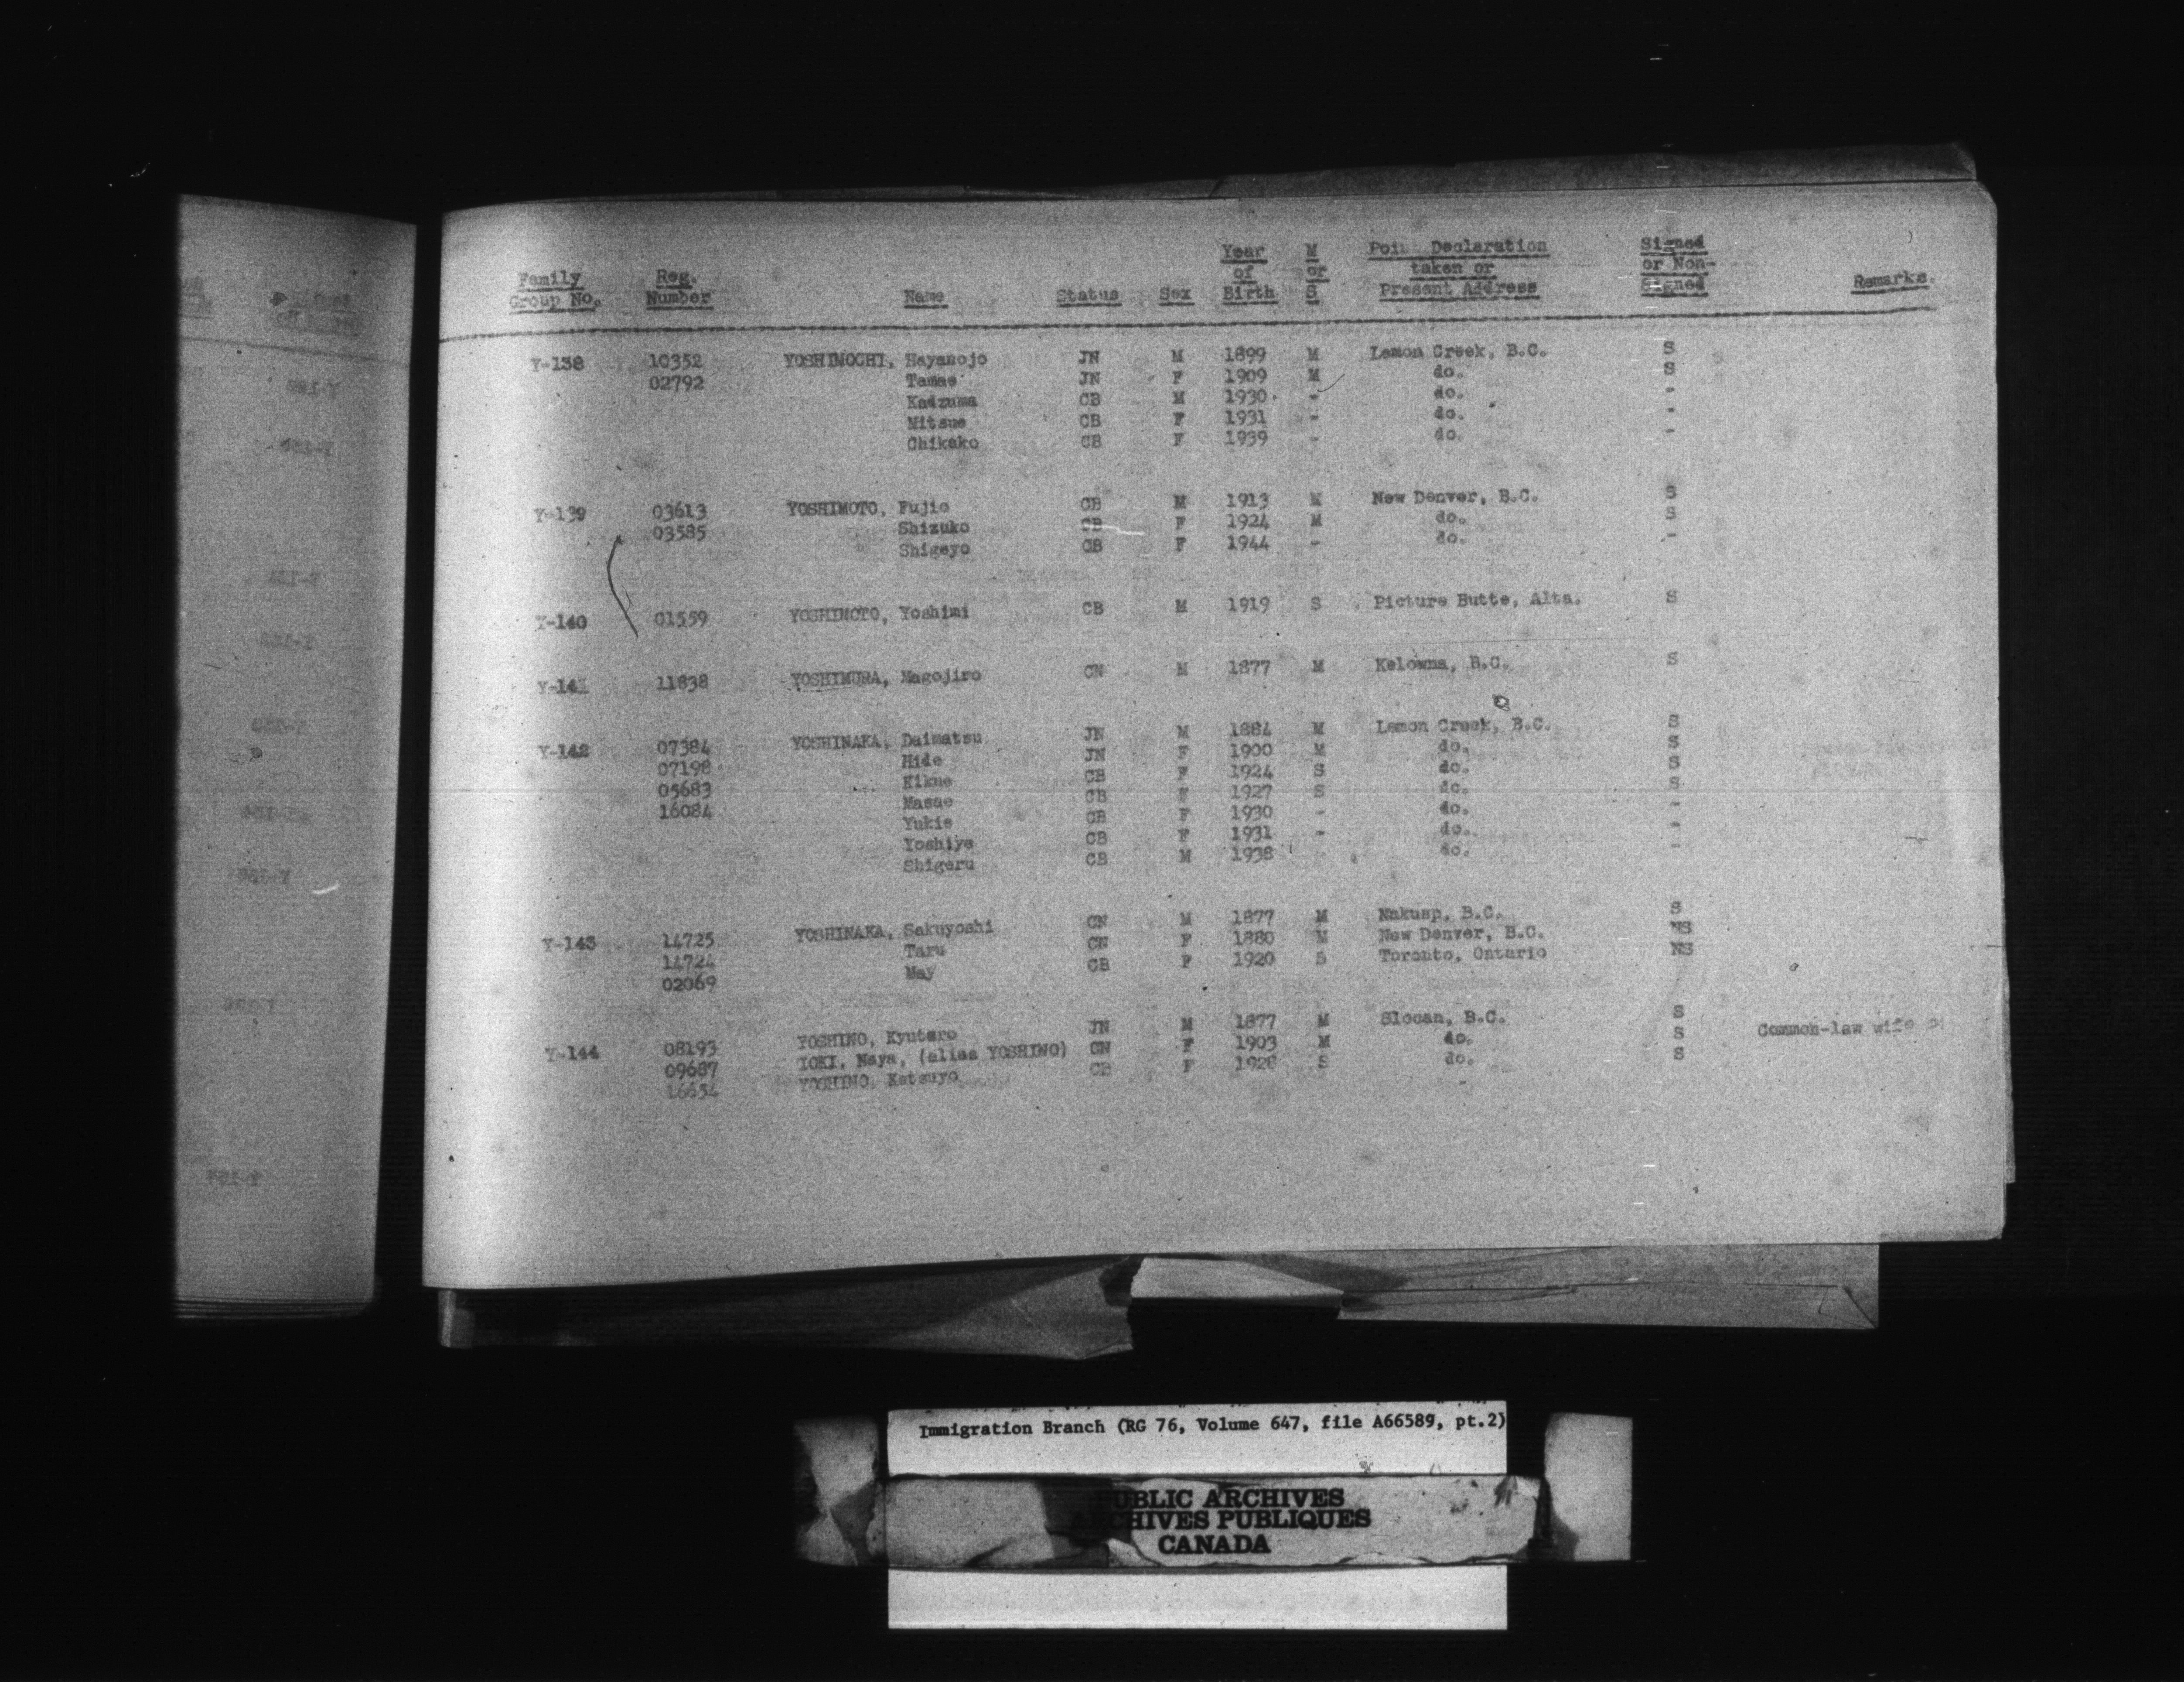 Family Group No. Reg. Number Name Status Sex Year of Birth M or S Point Declaration taken or Present Address Signed or Non-Signed Remarks
Y-138 10352 YOSHIMOCHI, Hayanojo JN M 1899 M Lemon Creek, B.C. S
02792 Tamae JN F 1909 M do. S
Kadzuma CB M 1930 - do. -
Mitsue CB F 1931 - do. -
Chikako CB F 1939 - do. -
Y-139 03613 YOSHIMOTO, Fujio CB M 1913 M New Denver, B.C. S
03585 Shizuko CB F 1924 M do. S
Shigeyo CB F 1944 - do. -
Y-140 01559 YOSHIMOTO, Yoshimi CB M 1919 S Picture Butte, Alta. S
Y-141 11838 YOSHIMURA, Magojiro CN M 1877 M Kelowna, B.C. S
Y-142 07384 YOSHINAKA, Daimatsu JN M 1884 M Lemon Creek, B.C. S
07198 Hide JN F 1900 M do. S
05683 Kikue CB F 1924 S do. S
16084 Masae CB F 1927 S do. S
Yukie CB F 1930 - do. -
Yoshiye CB F 1931 - do. -
Shigeru CB M 1938 - do. -
Y-143 14725 YOSHINAKA, Sakuyoshi CN M 1877 M Nakusp, B.C. S
14724 Taru CN F 1880 M New Denver, B.C. NS
02069 May CB F 1920 S Toronto, Ontario NS
Y-144 08193 YOSHINO, Kyutaro JN M 1877 M Slocan, B.C. S
09687 YOKI, Naya, (alias YOSHINO) CN F 1903 M do. S Common-law wife
16654 YOSHINO, Katsuyo CB F 1928 S do. S
Immigration Branch (RG 76, Volume 647, file A66589, pt.2)
PUBLIC ARCHIVES
ARCHIVES PUBLIQUES
CANADA